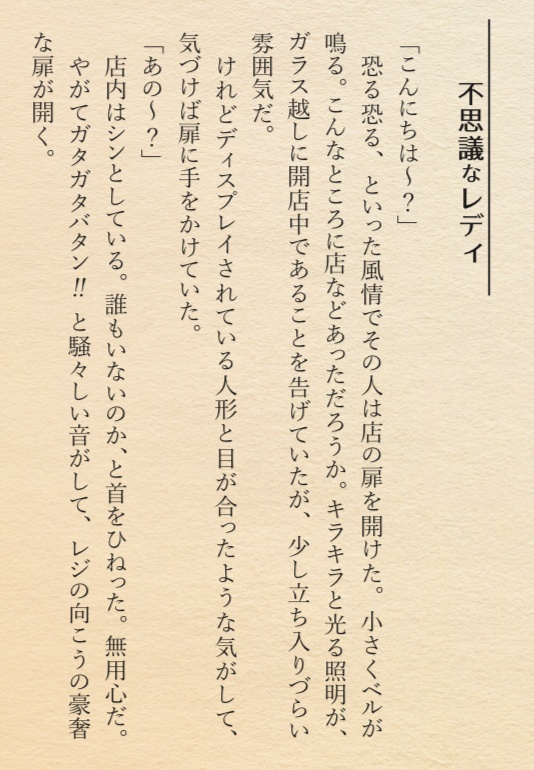 不思議なレディ
「こんにちは～？」
　恐る恐る、といった風情でその人は店の扉を開けた。小さくベルが
鳴る。こんなところに店などあっただろうか。キラキラと光る照明が、
ガラス越しに開店中であることを告げていたが、少し立ち入りづらい
雰囲気だ。
　けれどディスプレイされている人形と目が合ったような気がして、
気づけば扉に手をかけていた。
「あの～？」
　店内はシンとしている。誰もいないのか、と首をひねった。無用心だ。
　やがてガタガタバタン!! と騒々しい音がして、レジの向こうの豪奢
な扉が開く。